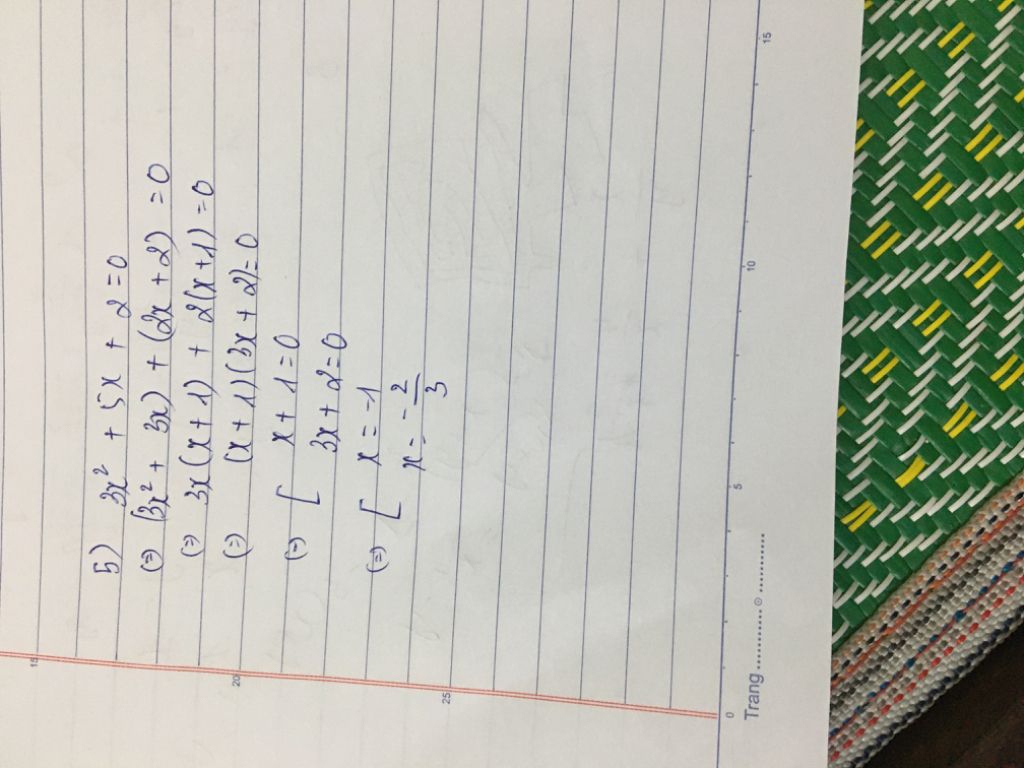 5) 3x² + 5x + 2 = 0
(=) (3x² + 3x) + (2x + 2) = 0
(=) 3x(x + 1) + 2(x + 1) = 0
(=) (x + 1)(3x + 2) = 0
(=) [ x + 1 = 0
3x + 2 = 0
(=) [ x = -1
x = -2/3
Trang
15
20
25
0
5
10
15